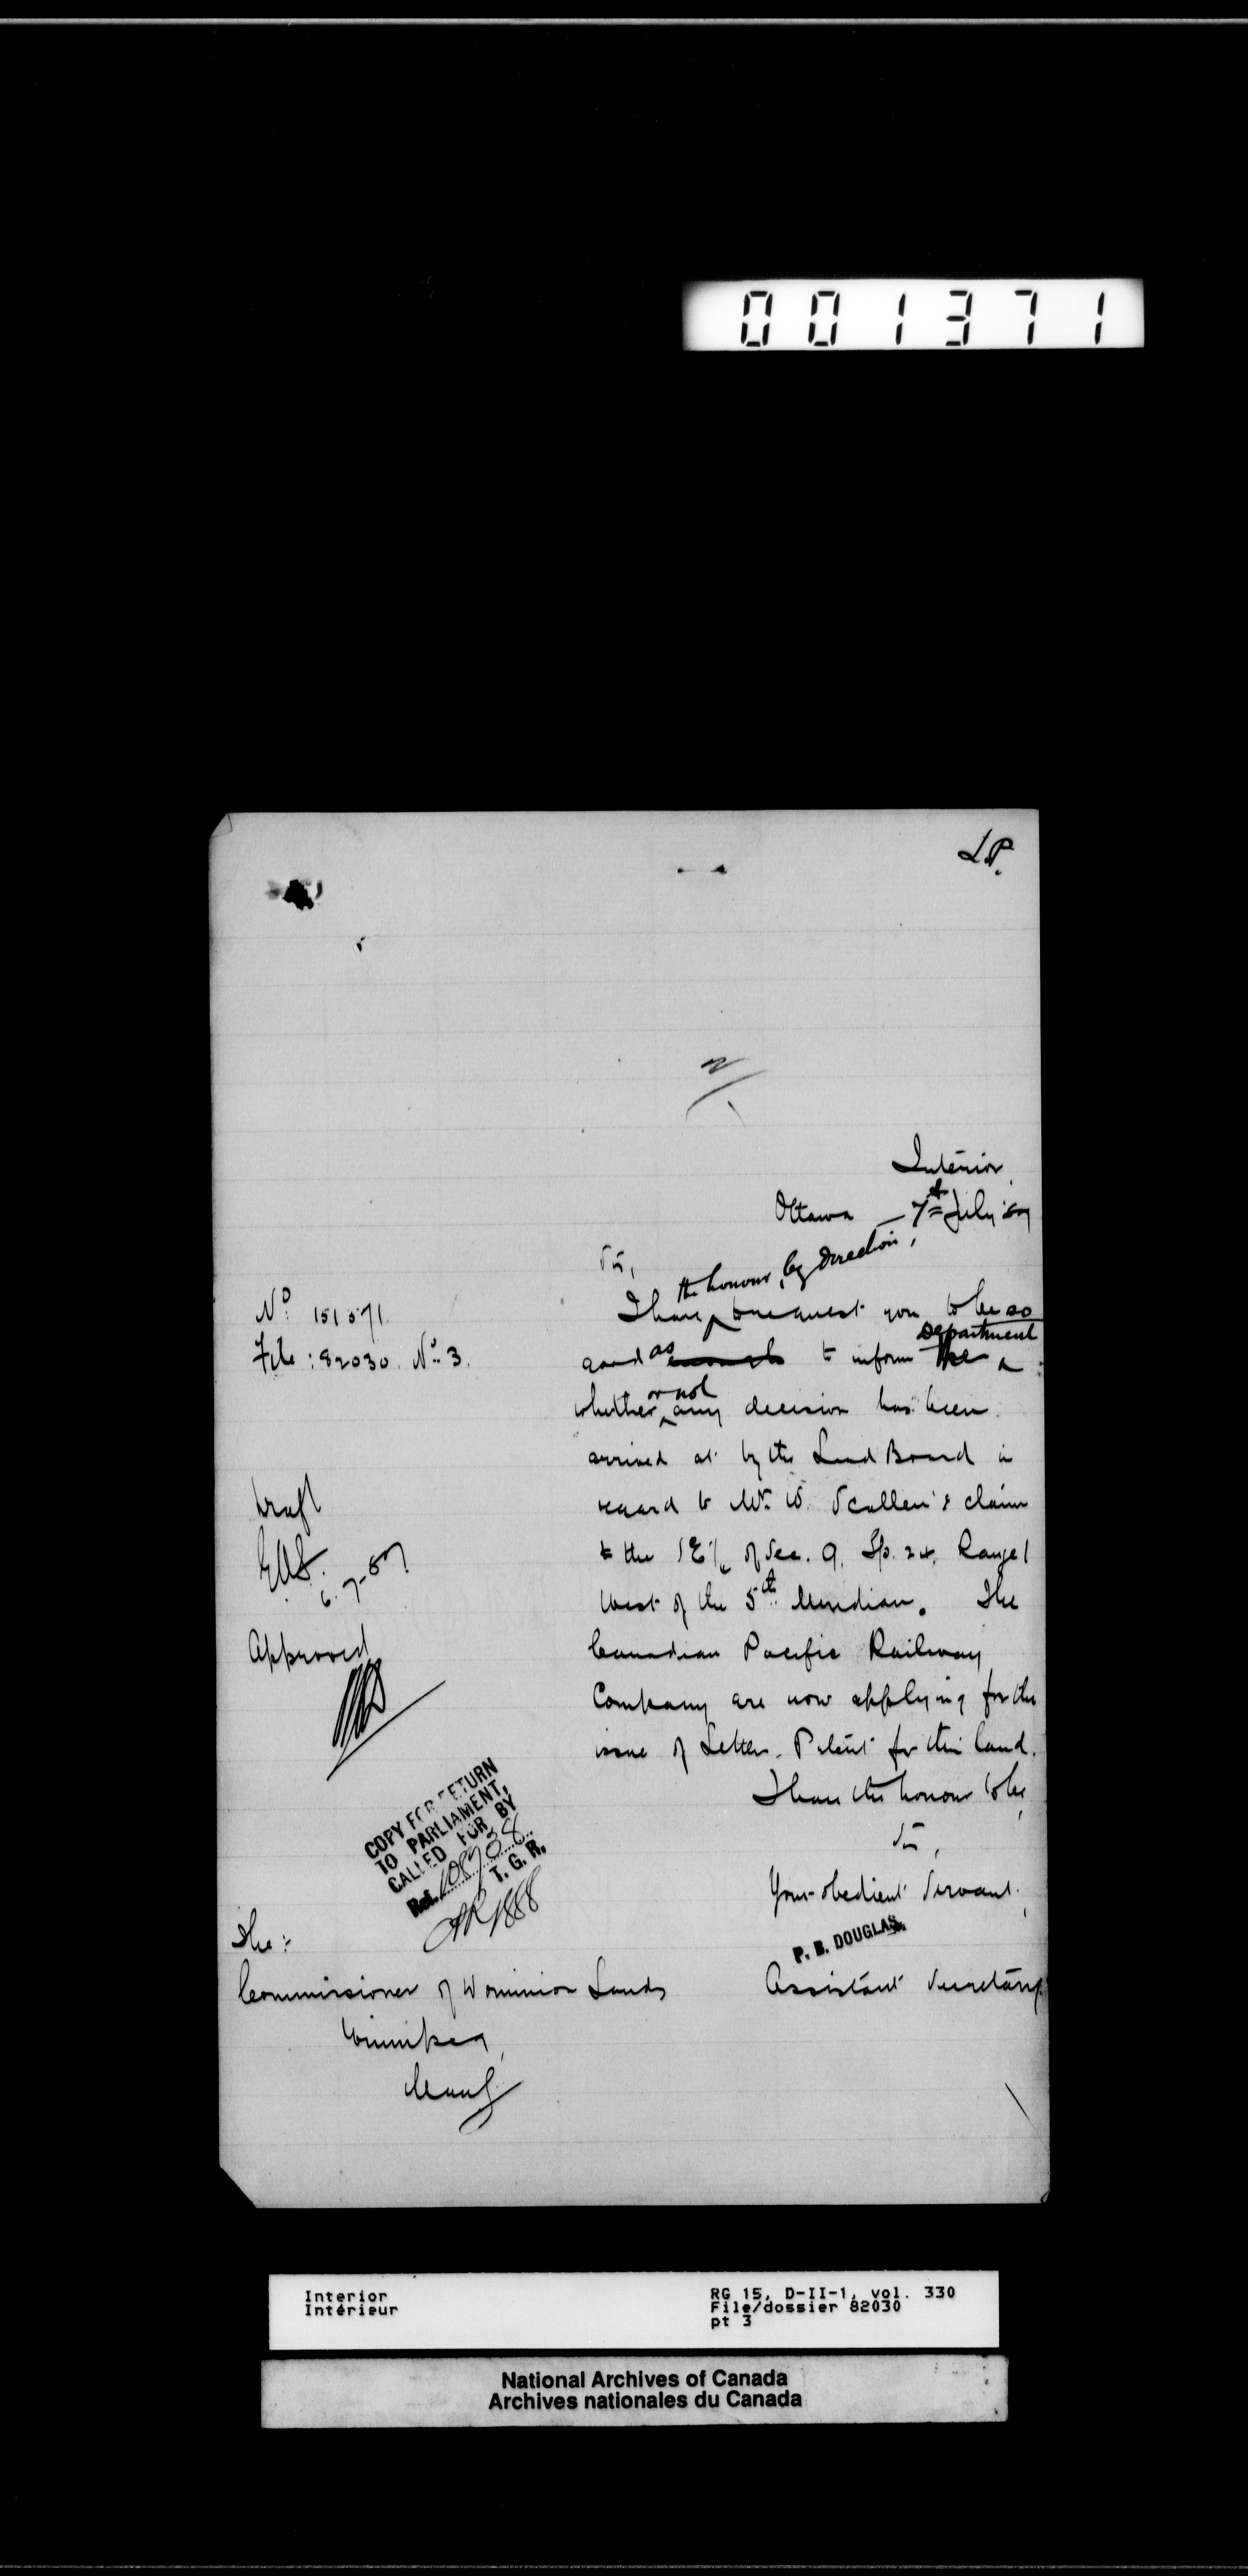 001371
L.P.
Interior
Ottawa - 7th July '87
Sir,
the honour, by direction,
I have to request you to be so
good as enough to inform the Department
whether or not any decision has been
arrived at by the Land Board in
regard to Mr. W. Scollen's claim
to the SE¼ of Sec. 9, Tp. 24, Range 1
West of the 5th Meridian. The
Canadian Pacific Railway
Company are now applying for the
issue of Letters Patent for this land.
I have the honour to be,
Sir,
Your obedient Servant,
P. B. DOUGLAS.
Assistant Secretary.
No. 151571.
File: 82030. No. 3.
Draft
6-7-87
Approved
COPY FOR RETURN
TO PARLIAMENT,
CALLED FOR BY
Ref. 108938
T. G. R.
1888
The:
Commissioner of Dominion Lands
Winnipeg,
Man.
Interior
Intérieur
RG 15, D-II-1, vol. 330
File/dossier 82030
pt 3
National Archives of Canada
Archives nationales du Canada